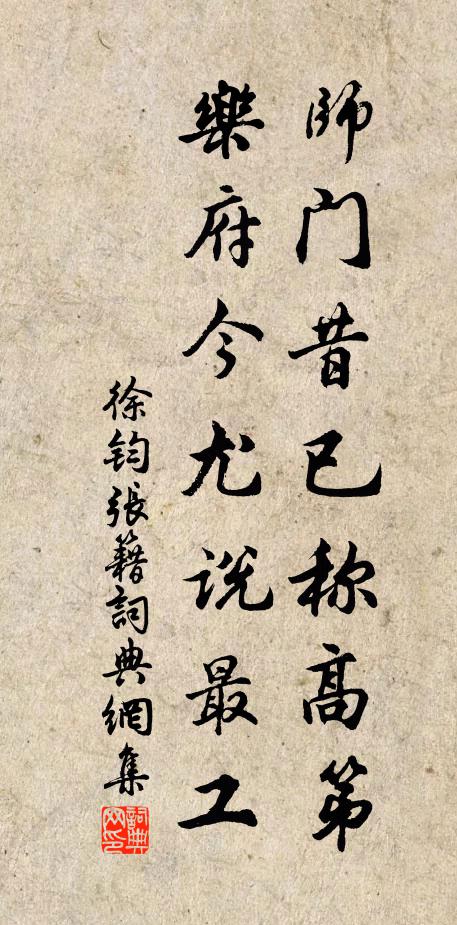 師门昔已称高第
樂府今尤说最工
徐钧張籍詞典網集
詞典网印